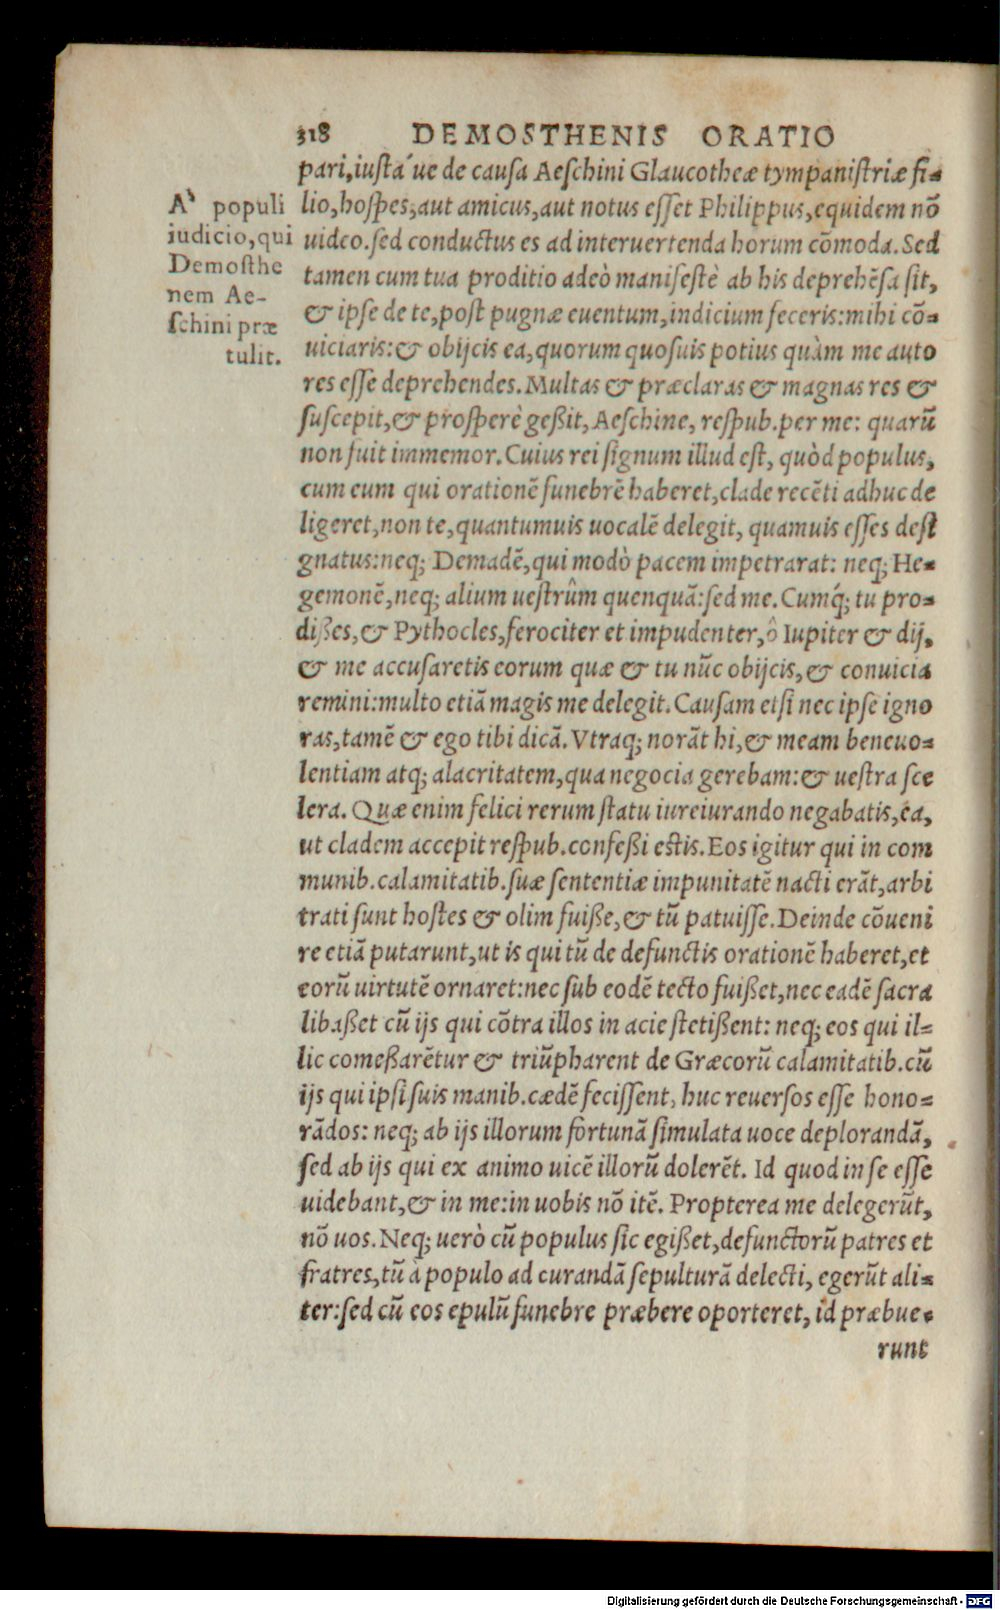 318 DEMOSTHENIS ORATIO
pari,iusta ́ue de causa Aeschini Glaucotheæ tympanistriæ fi-
lio,hospes,aut amicus,aut notus esset Philippus,equidem nō
uideo.sed conductus es ad interuertenda horum cōmoda. Sed
tamen cum tua proditio adeò manifestè ab his deprehēsa sit,
& ipse de te,post pugnæ euentum,indicium feceris:mihi cō-
uiciaris:& obijcis ea,quorum quosuis potius quàm me auto
res esse deprehendes. Multas & præclaras & magnas res &
suscepit,& prosperè geßit, Aeschine, respub.per me: quarū
non fuit immemor. Cuius rei signum illud est, quòd populus,
cum eum qui orationē funebrē haberet,clade recēti adhuc de
ligeret,non te,quantumuis uocalē delegit, quamuis esses desi
gnatus:neq; Demadē,qui modò pacem impetrarat: neq; He-
gemonē,neq; alium uestrûm quenquā:sed me. Cumq́; tu pro-
dißes,& Pythocles,ferociter et impudenter,ô Iupiter & dij,
& me accusaretis eorum quæ & tu nūc obijcis,& conuicia
remini:multo etiā magis me delegit. Causam etsi nec ipse igno
ras,tamē & ego tibi dicā. Vtraq; norāt hi,& meam beneuo-
lentiam atq; alacritatem,qua negocia gerebam:& uestra sce
lera. Quæ enim felici rerum statu iureiurando negabatis,ea,
ut cladem accepit respub.confeßi estis. Eos igitur qui in com
munib.calamitatib.suæ sententiæ impunitatē nacti erāt,arbi
trati sunt hostes & olim fuiße,& tū patuisse. Deinde cōueni
re etiā putarunt,ut is qui tū de defunctis orationē haberet,et
eorū uirtutē ornaret:nec sub eodē tecto fuißet,nec eadē sacra
libaßet cū ijs qui cōtra illos in acie stetißent: neq; eos qui il-
lic comeßarētur & triūpharent de Græcorū calamitatib.cū
ijs qui ipsi suis manib.cædē fecissent, huc reuersos esse hono-
rādos: neq; ab ijs illorum fortunā simulata uoce deplorandā,
sed ab ijs qui ex animo uicē illorū dolerēt. Id quod in se esse
uidebant,& in me:in uobis nō itē. Propterea me delegerūt,
nō uos. Neq; uerò cū populus sic egißet,defunctorū patres et
fratres,tū à populo ad curandā sepulturā delecti, egerūt ali-
ter:sed cū eos epulū funebre præbere oporteret, id præbue-
runt
A' populi
iudicio,qui
Demosthe
nem Ae-
schini præ
tulit.
Digitalisierung gefördert durch die Deutsche Forschungsgemeinschaft - DFG